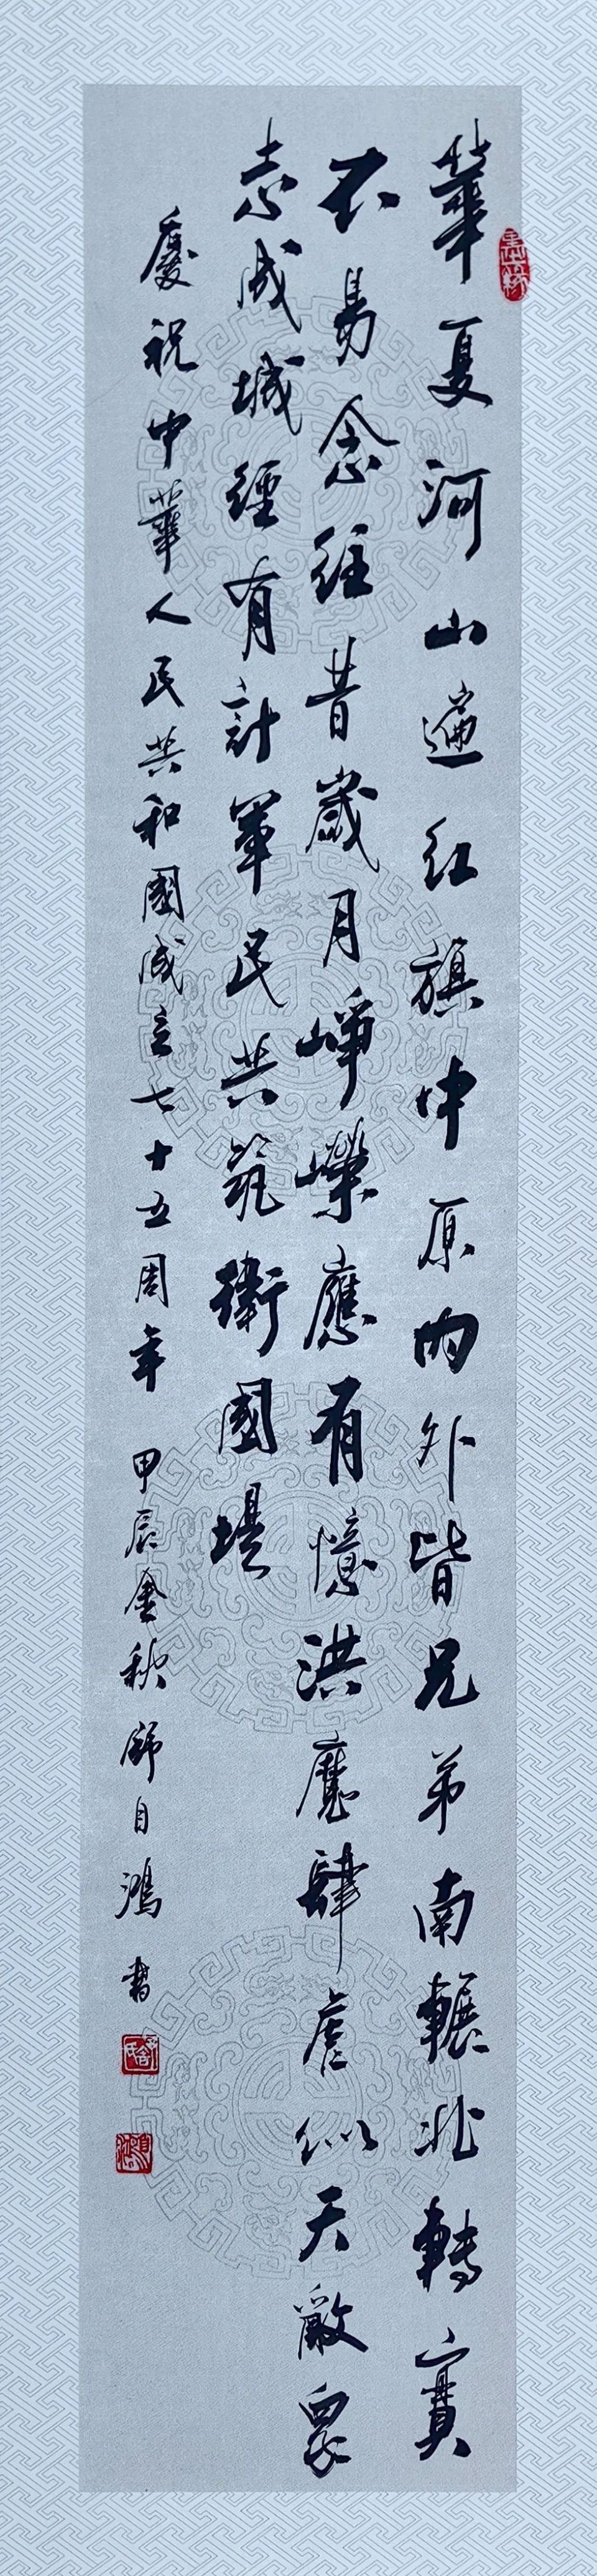 華夏河山遍红旗中原内外皆兄弟南輾北轉實
不易念往昔歲月崢嶸應有憶洪魔肆虐似天敵眾
志成城經有計軍民共筑衛國堤
慶祝中華人民共和國成立七十五周年 甲辰金秋 師自鴻書